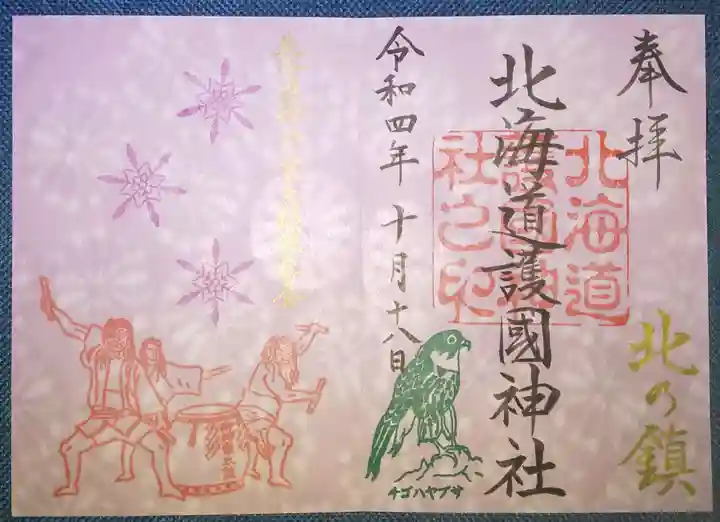 奉拝
北の鎮
北海道護國神社
北海道
護國神
社之印
令和四年 十月十八日
チゴハヤブサ